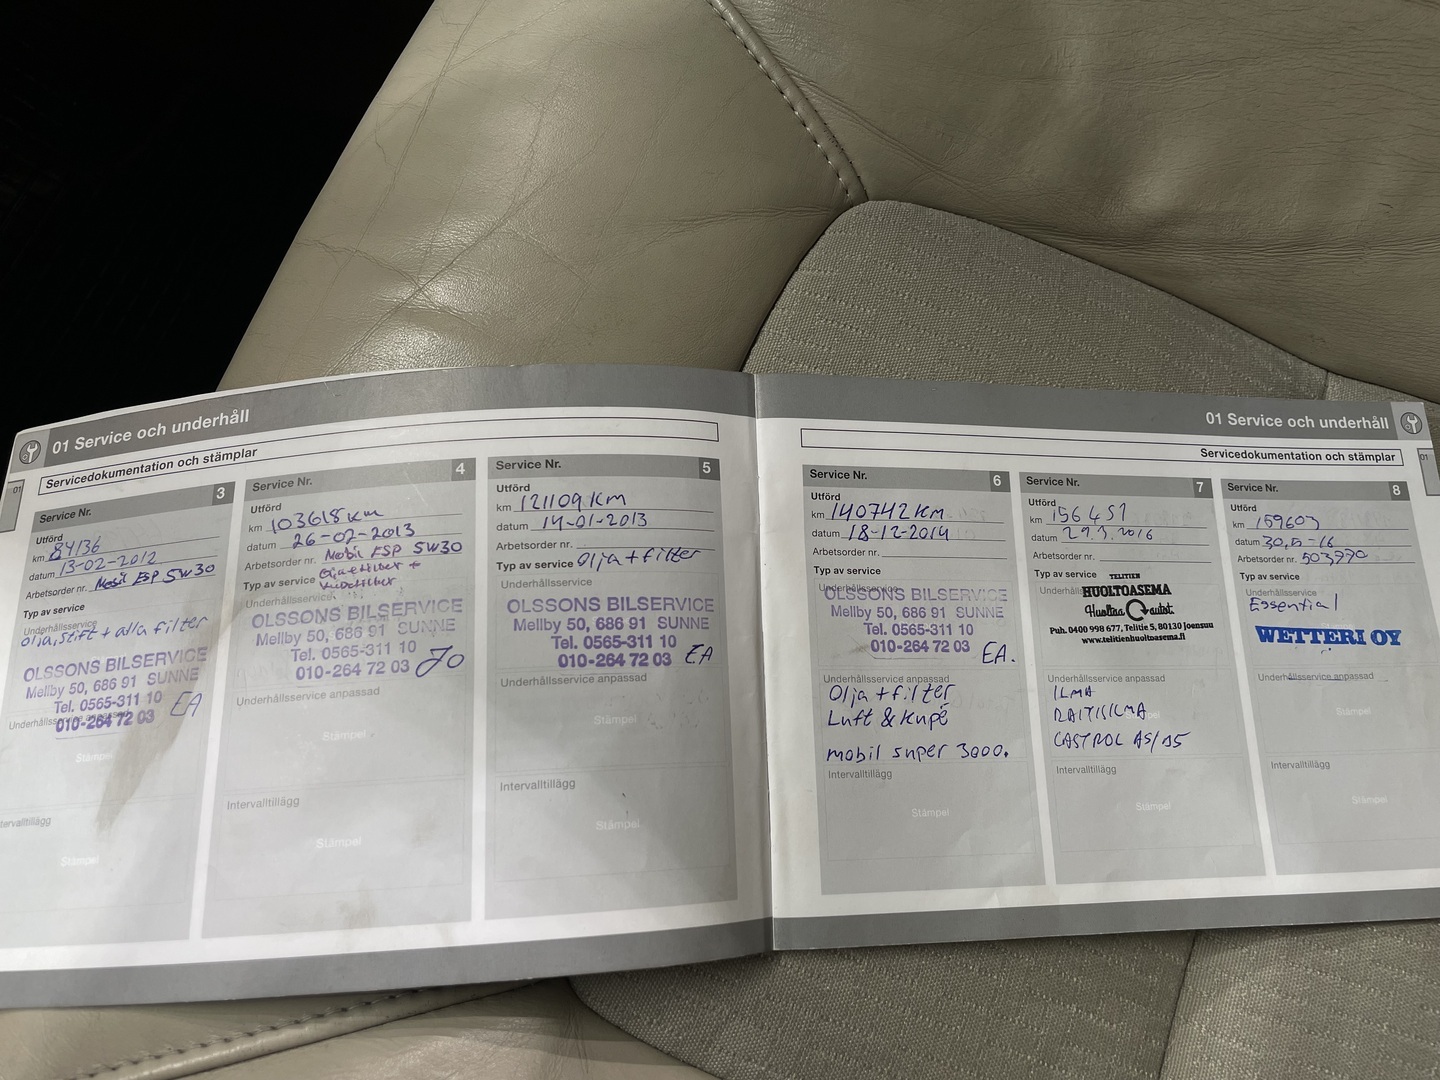 01 Service och underhåll
Servicedokumentation och stämplar
01
Service Nr. 3
Utförd
km 84136
datum 13-02-2012
Arbetsorder nr. Mobil ESP 5W30
Typ av service
Underhållsservice
olja, stift + alla filter
OLSSONS BILSERVICE
Mellby 50, 686 91 SUNNE
Tel. 0565-311 10
010-264 72 03 EA
Underhållsservice anpassad
Stämpel
Intervalltillägg
Stämpel
Service Nr. 4
Utförd
km 103618 km
datum 26-02-2013
Arbetsorder nr. Mobil ESP 5W30
Typ av service
Underhållsservice
OLSSONS BILSERVICE
Mellby 50, 686 91 SUNNE
Tel. 0565-311 10
010-264 72 03 JO
Underhållsservice anpassad
Stämpel
Intervalltillägg
Stämpel
Service Nr. 5
Utförd
km 121109 km
datum 14-01-2013
Arbetsorder nr.
Typ av service olja + filter
Underhållsservice
OLSSONS BILSERVICE
Mellby 50, 686 91 SUNNE
Tel. 0565-311 10
010-264 72 03 EA
Underhållsservice anpassad
Stämpel
Intervalltillägg
Stämpel
01 Service och underhåll
Servicedokumentation och stämplar
01
Service Nr. 6
Utförd
km 140742 km
datum 18-12-2014
Arbetsorder nr.
Typ av service
Underhållsservice
OLSSONS BILSERVICE
Mellby 50, 686 91 SUNNE
Tel. 0565-311 10
010-264 72 03 EA.
Underhållsservice anpassad
Olja + filter
Luft & Kupé
mobil super 3000.
Intervalltillägg
Stämpel
Service Nr. 7
Utförd
km 156451
datum 29.3.2016
Arbetsorder nr.
Typ av service
TELITIEN
HUOLTOASEMA
Huoltaa autosi.
Puh. 0400 998 677, Telitie 5, 80130 Joensuu
www.telitienhuoltoasema.fi
Underhållsservice anpassad
ILMA
RAITISILMA
CASTROL A5/B5
Intervalltillägg
Stämpel
Service Nr. 8
Utförd
km 159603
datum 30.5-16
Arbetsorder nr. 503970
Typ av service
Underhållsservice
Essential
WETTERI OY
Underhållsservice anpassad
Stämpel
Intervalltillägg
Stämpel